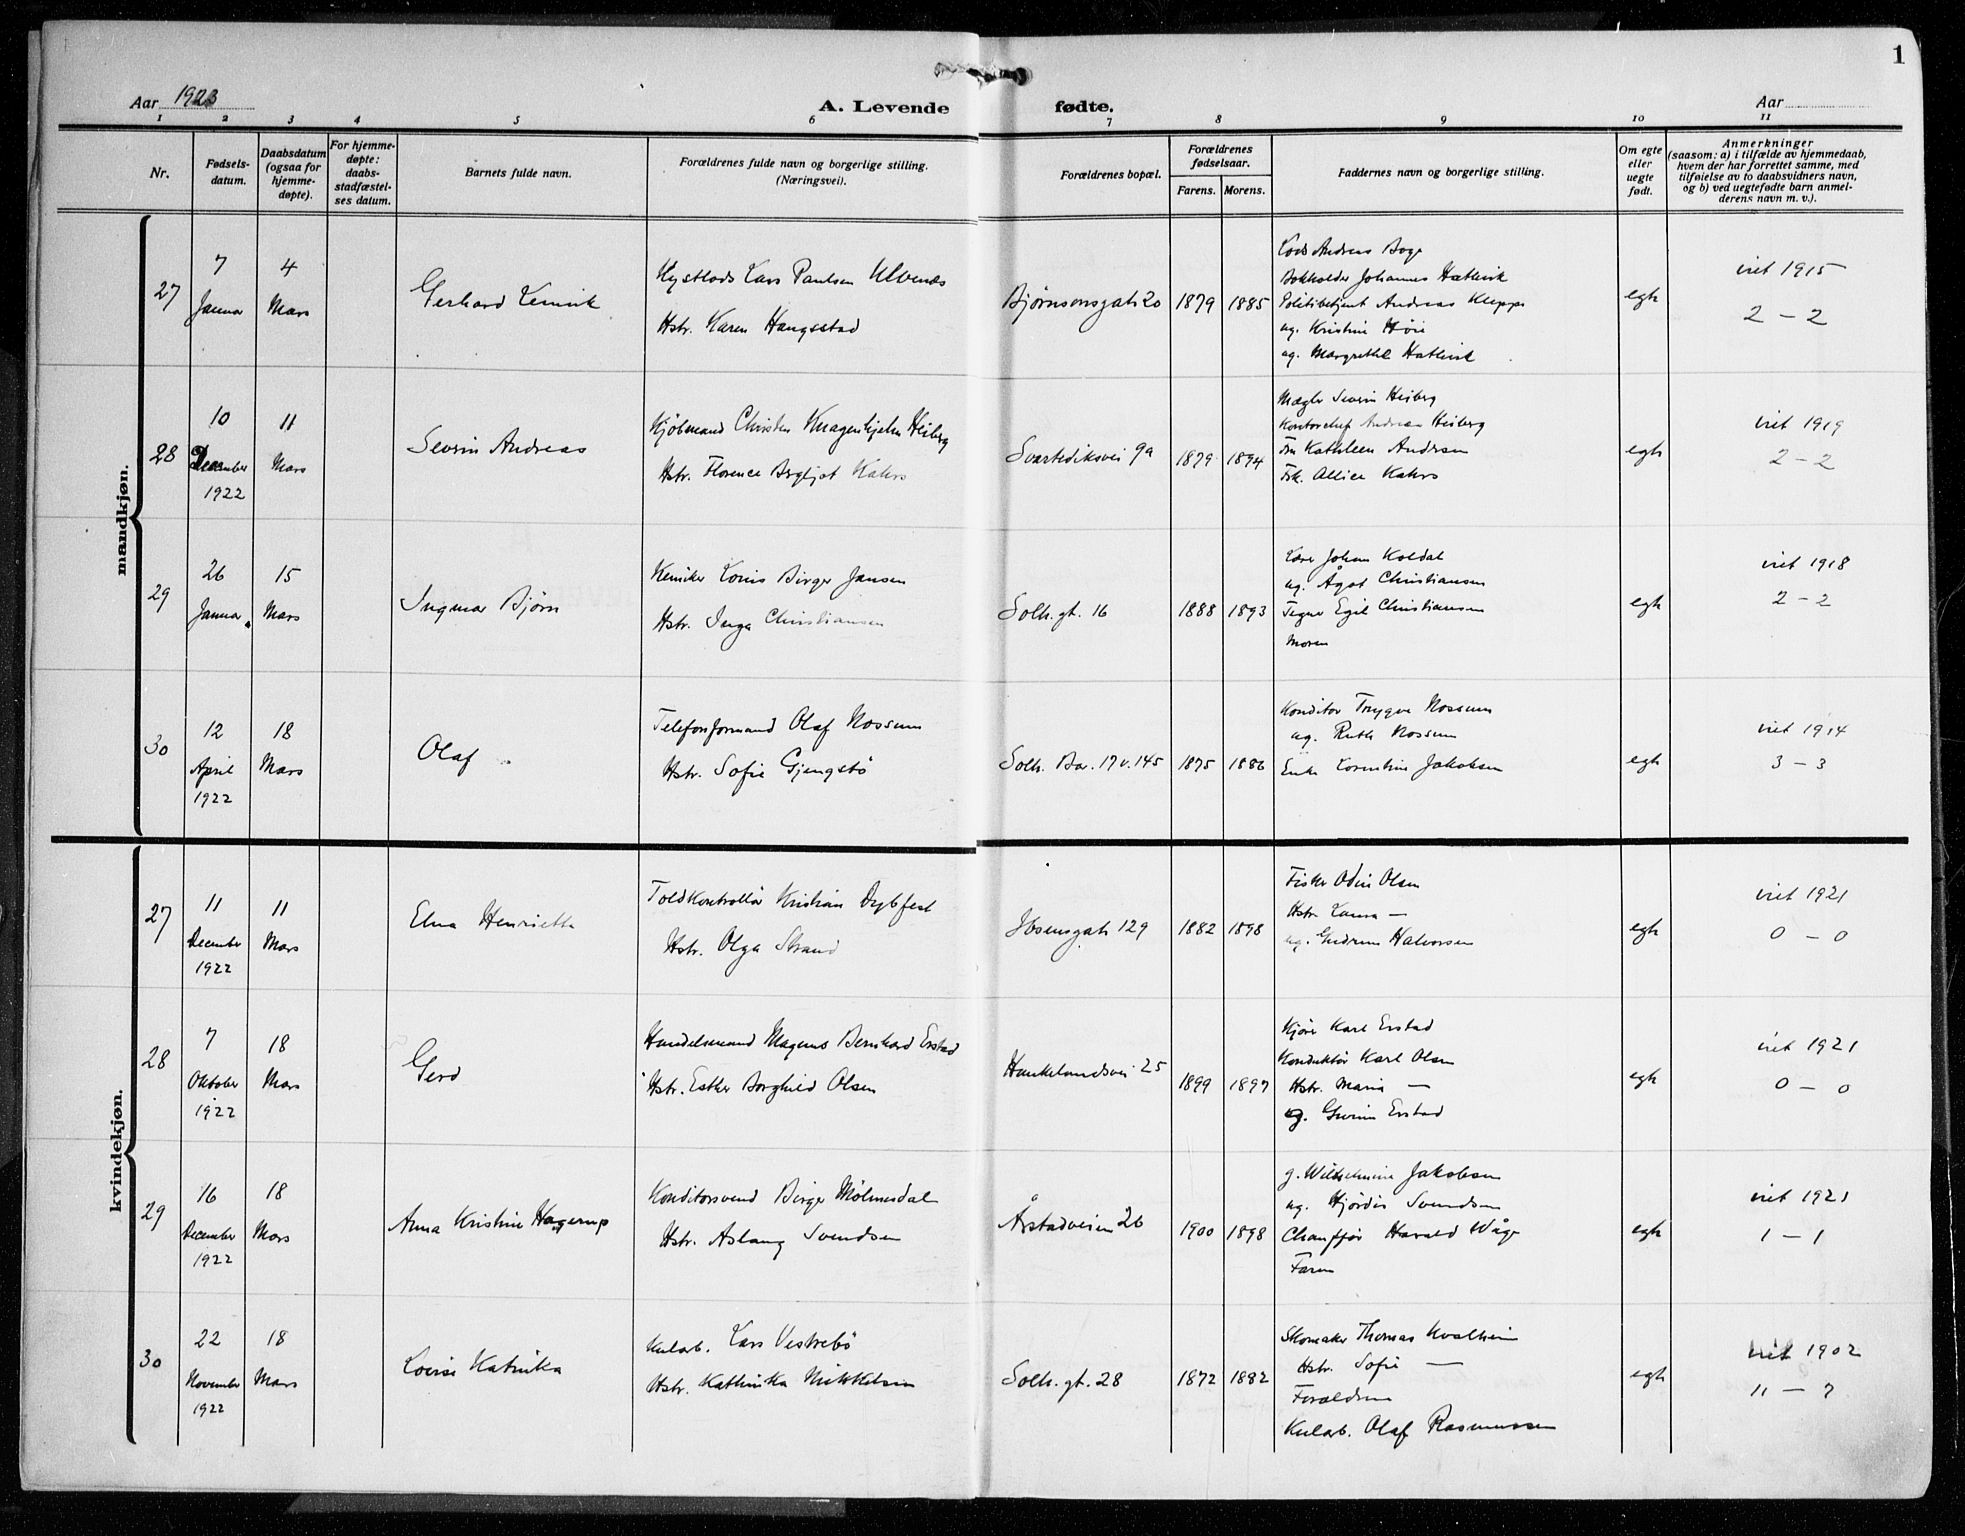 1
Aar 1923
A. Levende fødte.
Aar
1 2 3 4 5 6 7 8 9 10 11
Nr.
Fødsels-
datum.
Daabsdatum
(ogsaa for
hjemme-
døpte).
For hjemme-
døpte:
daabs-
stadfæstel-
ses datum.
Barnets fulde navn.
Forældrenes fulde navn og borgerlige stilling.
(Næringsvei).
Forældrenes bopæl.
Forældrenes
fødselsaar.
Farens. Morens.
Faddernes navn og borgerlige stilling.
Om egte
eller
uegte
født.
Anmerkninger
(saasom: a) i tilfælde av hjemmedaab,
hvem der har forrettet samme, med
tilføielse av to daabsvidners navn,
og b) ved uegtefødte barn anmel-
derens navn m. v.).
mandkjøn.
27
7
Januar
4
Mars
Gerhard
Lars Paulsen Ulvenes
Hstr. Karen Haugsstad
Bjørnsonsgate 20
1879
1885
Lods Andreas Boge
Bokholder Johannes Hatlevik
Politibetjent Andreas Kleppe
ug. Kristine Høie
ug. Margrethe Hatlevik
egte
viet 1915
2 - 2
28
10
December
1922
11
Mars
Severin Andreas
Kjøbmand Christen Knagenhjelm Heiberg
Hstr. Florence Bergljot Kahrs
Svartediksvei 9a
1879
1894
Mægler Severin Heiberg
Kontorchef Andreas Heiberg
Fru Kathleen Andersen
Frk. Allice Kahrs
egte
viet 1919
2 - 2
29
26
Januar
15
Mars
Ingmar Bjørn
Kemiker Louis Birger Jansen
Hstr. Inga Christiansen
Solh. gt. 16
1888
1893
Johan Koldal
ug. Ågot Christiansen
Tegner Egil Christiansen
Moren
egte
viet 1918
2 - 2
30
12
April
1922
18
Mars
Olaf
Telefonformand Olaf Nossum
Hstr. Sofie Gjengstø
Solh. Bar. 17 v. 145
1875
1886
Konditor Trygve Nossum
ug. Ruth Nossum
Enke Lorentine Jakobsen
egte
viet 1914
3 - 3
kvindekjøn.
27
11
December
1922
11
Mars
Elna Henriette
Toldkontrollør Kristian Dybfest
Hstr. Olga Strand
Ibsensgate 129
1882
1898
Fisker Odin Olsen
Hstr. Laura —
ug. Gudrun Halvorsen
egte
viet 1921
0 - 0
28
7
Oktober
1922
18
Mars
Gerd
Handelsmand Magnus Bernhard Erstad
Hstr. Esther Borghild Olsen
Haukelandsvei 25
1899
1897
Kjører Karl Erstad
Konduktør Karl Olsen
Hstr. Maria —
ug. Erstad
egte
viet 1921
0 - 0
29
16
December
1922
18
Mars
Anna Kristine Hagerup
Konditorsvend Birger Mølmesdal
Hstr. Aslaug Svendsen
Årstadveien 26
1900
1898
g. Wilhelmine Jakobsen
ug. Hjørdis Svendsen
Chauffør Harald Våge
Faren
egte
viet 1921
1 - 1
30
22
November
1922
18
Mars
Lovise Katrika
Kularb. Lars Vestrebø
Hstr. Kathinka Mikkelsen
Solh. gt. 28
1872
1882
Skomaker Thomas Kvalheim
Hstr. Sofie —
Forældrene
Kularb. Olaf Rasmussen
egte
viet 1902
11 - 7